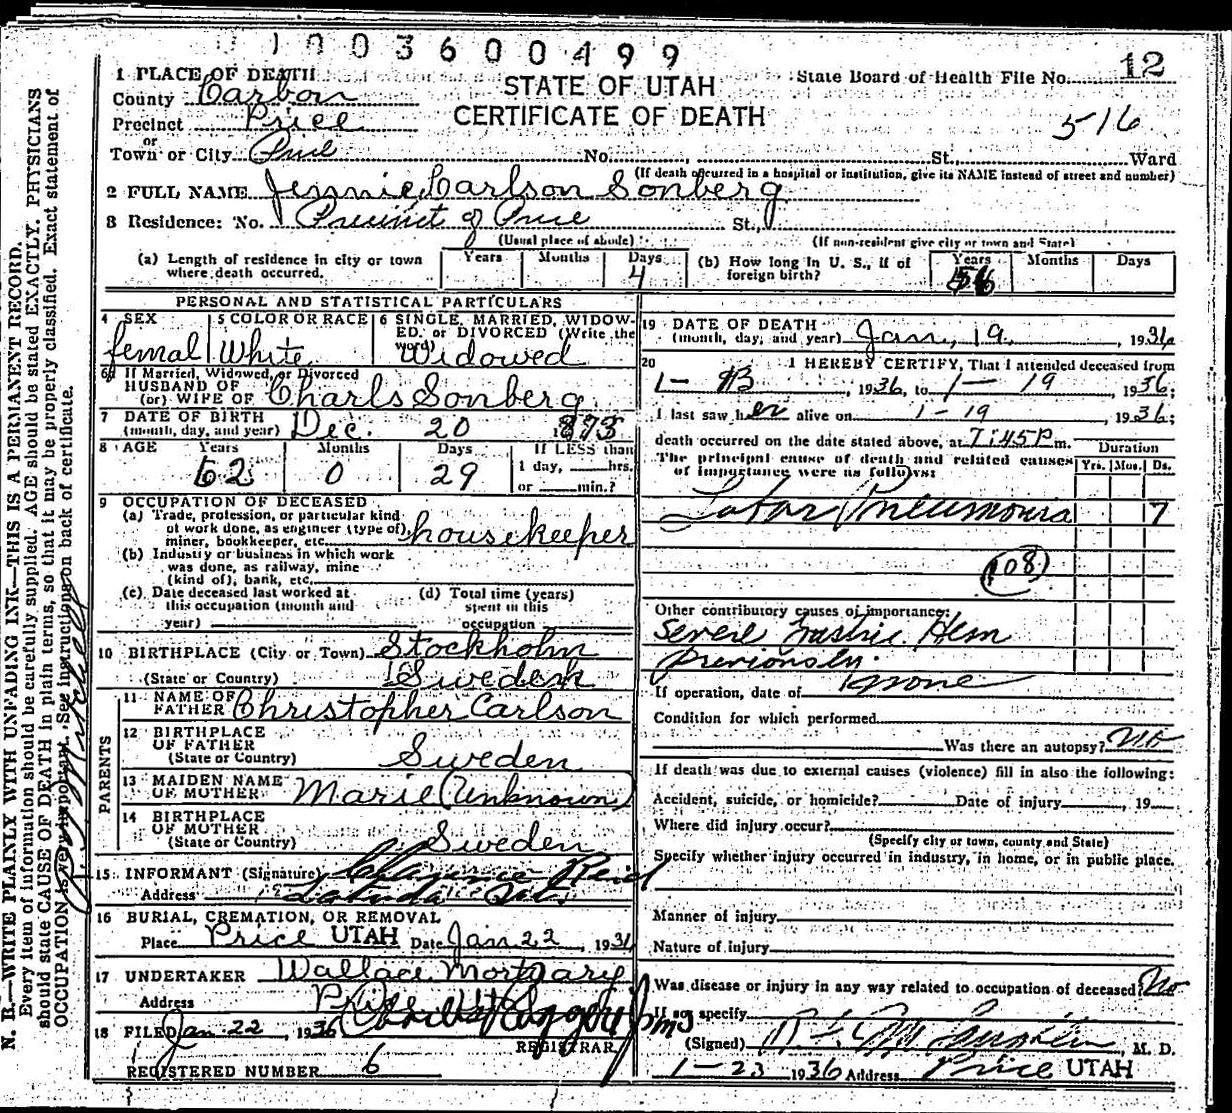 1003600499
12
1 PLACE OF DEATH
STATE OF UTAH
State Board of Health File No.
County Carbon
CERTIFICATE OF DEATH
516
Precinct Price
or
Town or City Price No. St., Ward
(If death occurred in a hospital or institution, give its NAME instead of street and number)
2 FULL NAME Jennie Carlson Sonberg
3 Residence: No. Precinct of Price St.
(Usual place of abode) (If non-resident give city or town and State)
(a) Length of residence in city or town where death occurred. Years Months Days 4
(b) How long in U. S., if of foreign birth? Years Months Days
PERSONAL AND STATISTICAL PARTICULARS
4 SEX femal
5 COLOR OR RACE White
6 SINGLE, MARRIED, WIDOWED, or DIVORCED (Write the word) Widowed
6a If Married, Widowed, or Divorced
HUSBAND OF
(or) WIFE OF Charls Sonberg
7 DATE OF BIRTH
(month, day, and year) Dec. 20 1873
8 AGE Years 62 Months 0 Days 29 If LESS than
1 day, hrs.
or min.?
9 OCCUPATION OF DECEASED
(a) Trade, profession, or particular kind
of work done, as engineer (type of),
miner, bookkeeper, etc. housekeeper
(b) Industry or business in which work
was done, as railway, mine
(kind of), bank, etc.
(c) Date deceased last worked at
this occupation (month and
year)
(d) Total time (years)
spent in this
occupation
10 BIRTHPLACE (City or Town) Stockholm
(State or Country) Sweden
PARENTS
11 NAME OF
FATHER Christopher Carlson
12 BIRTHPLACE
OF FATHER
(State or Country) Sweden
13 MAIDEN NAME
OF MOTHER Marie (Unknown)
14 BIRTHPLACE
OF MOTHER
(State or Country) Sweden
15 INFORMANT (Signature) Clarence Reid
Address
16 BURIAL, CREMATION, OR REMOVAL
Place Price UTAH Date Jan 22, 1936
17 UNDERTAKER Wallace Mortuary
Address Price Utah
18 FILED Jan 22, 1936
REGISTRAR
REGISTERED NUMBER 6
19 DATE OF DEATH
(month, day, and year) Jan, 19, 1936
20 I HEREBY CERTIFY, That I attended deceased from
1- 13, 1936, to 1-19 1936;
I last saw her alive on 1-19, 1936;
death occurred on the date stated above, at 7:45 P m.
The principal cause of death and related causes
of importance were as follows:
Duration
Yrs. Mos. Ds.
Lobar Pneumonia 7
108
Other contributory causes of importance:
Severe Gastric Hem
previously.
If operation, date of none
Condition for which performed
Was there an autopsy? no
If death was due to external causes (violence) fill in also the following:
Accident, suicide, or homicide? Date of injury, 19
Where did injury occur?
(Specify city or town, county and State)
Specify whether injury occurred in industry, in home, or in public place.
Manner of injury
Nature of injury
Was disease or injury in any way related to occupation of deceased? No
If so specify
(Signed) M. D.
1-23 1936 Address Price UTAH
N. B.—WRITE PLAINLY WITH UNFADING INK—THIS IS A PERMANENT RECORD.
Every item of information should be carefully supplied. AGE should be stated EXACTLY. PHYSICIANS
should state CAUSE OF DEATH in plain terms, so that it may be properly classified. Exact statement of
OCCUPATION is very important. See instructions on back of certificate.